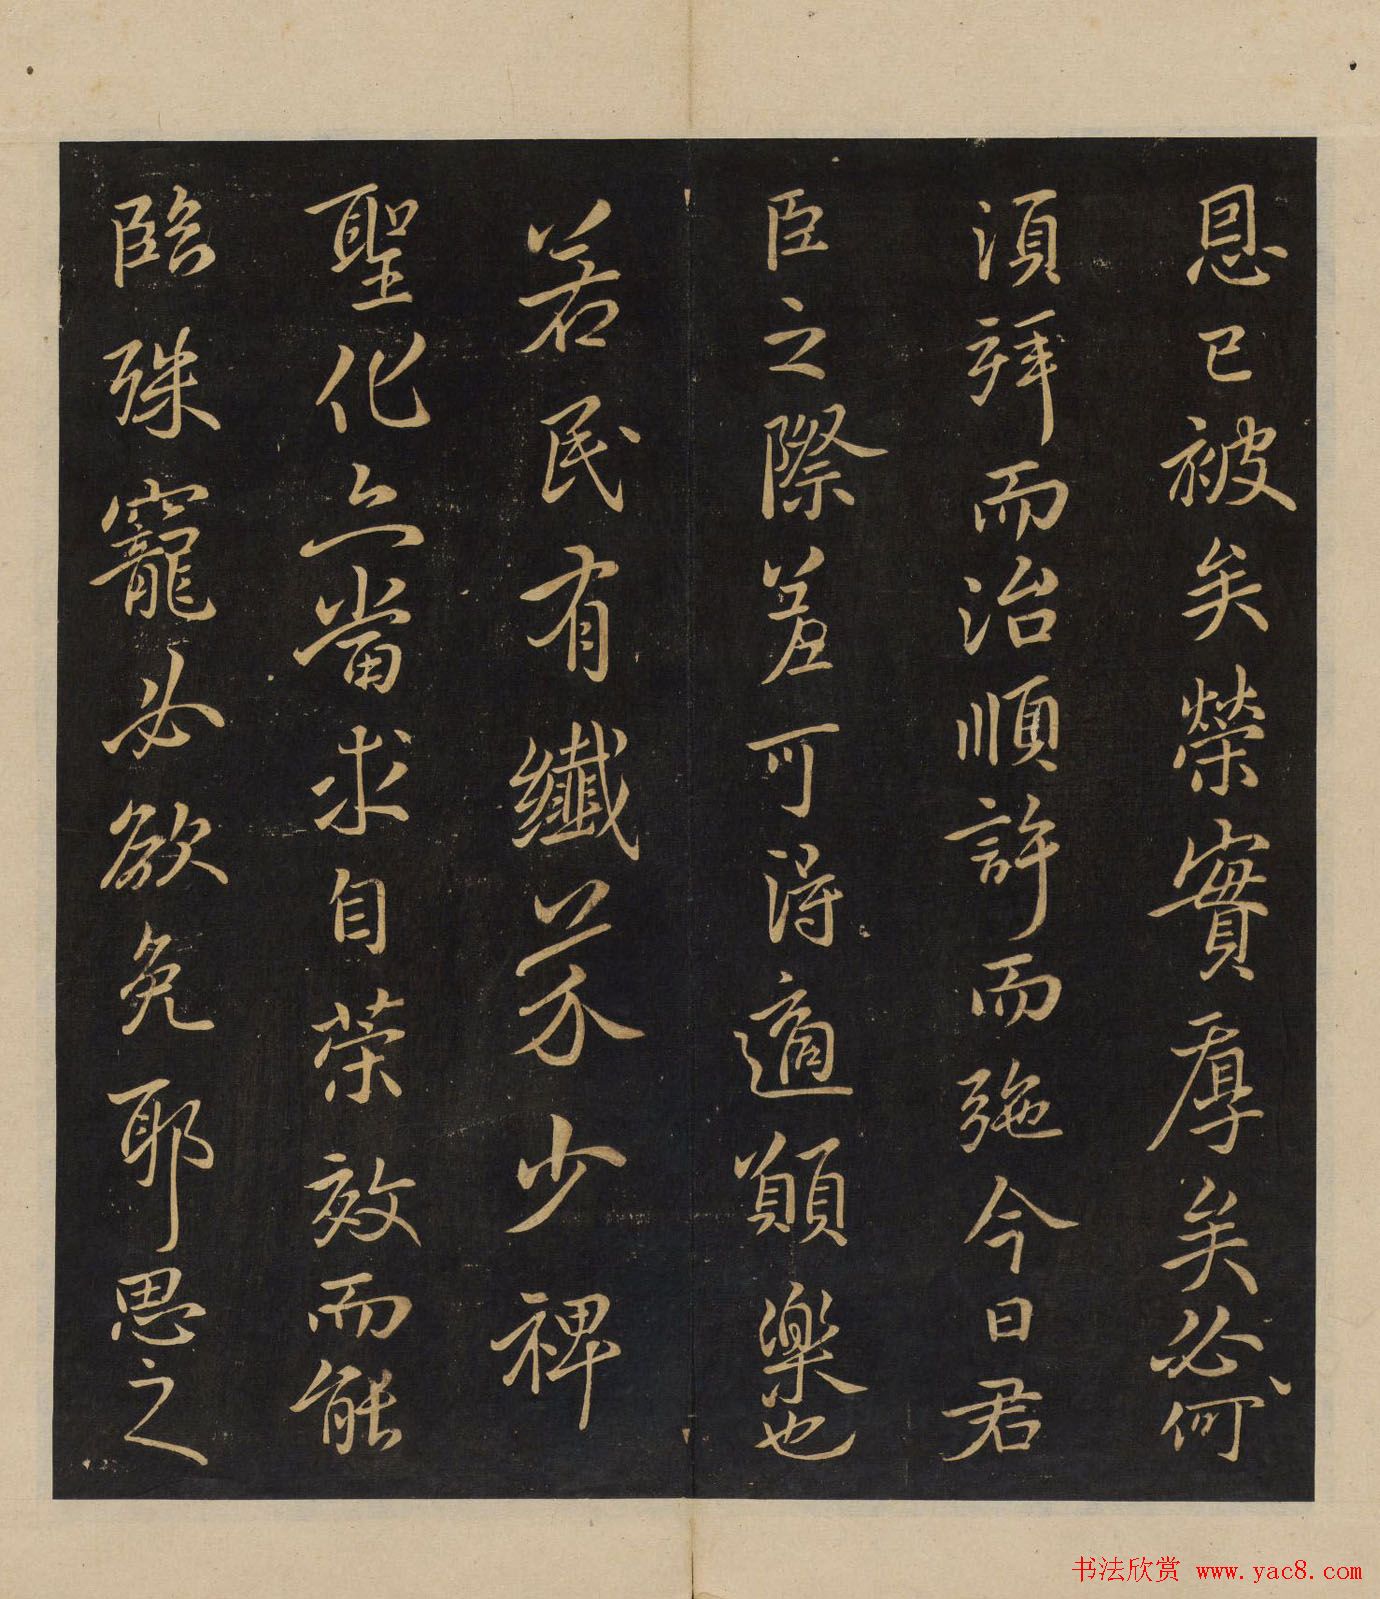 恩已被矣榮實辱矣必何
須拜而治順許而施今日君
臣之際差可得適願樂也
若民有纖芥少裨
聖化亦當求自榮效而能
臨殊寵必欲免耶思之
书法欣赏 www.yac8.com